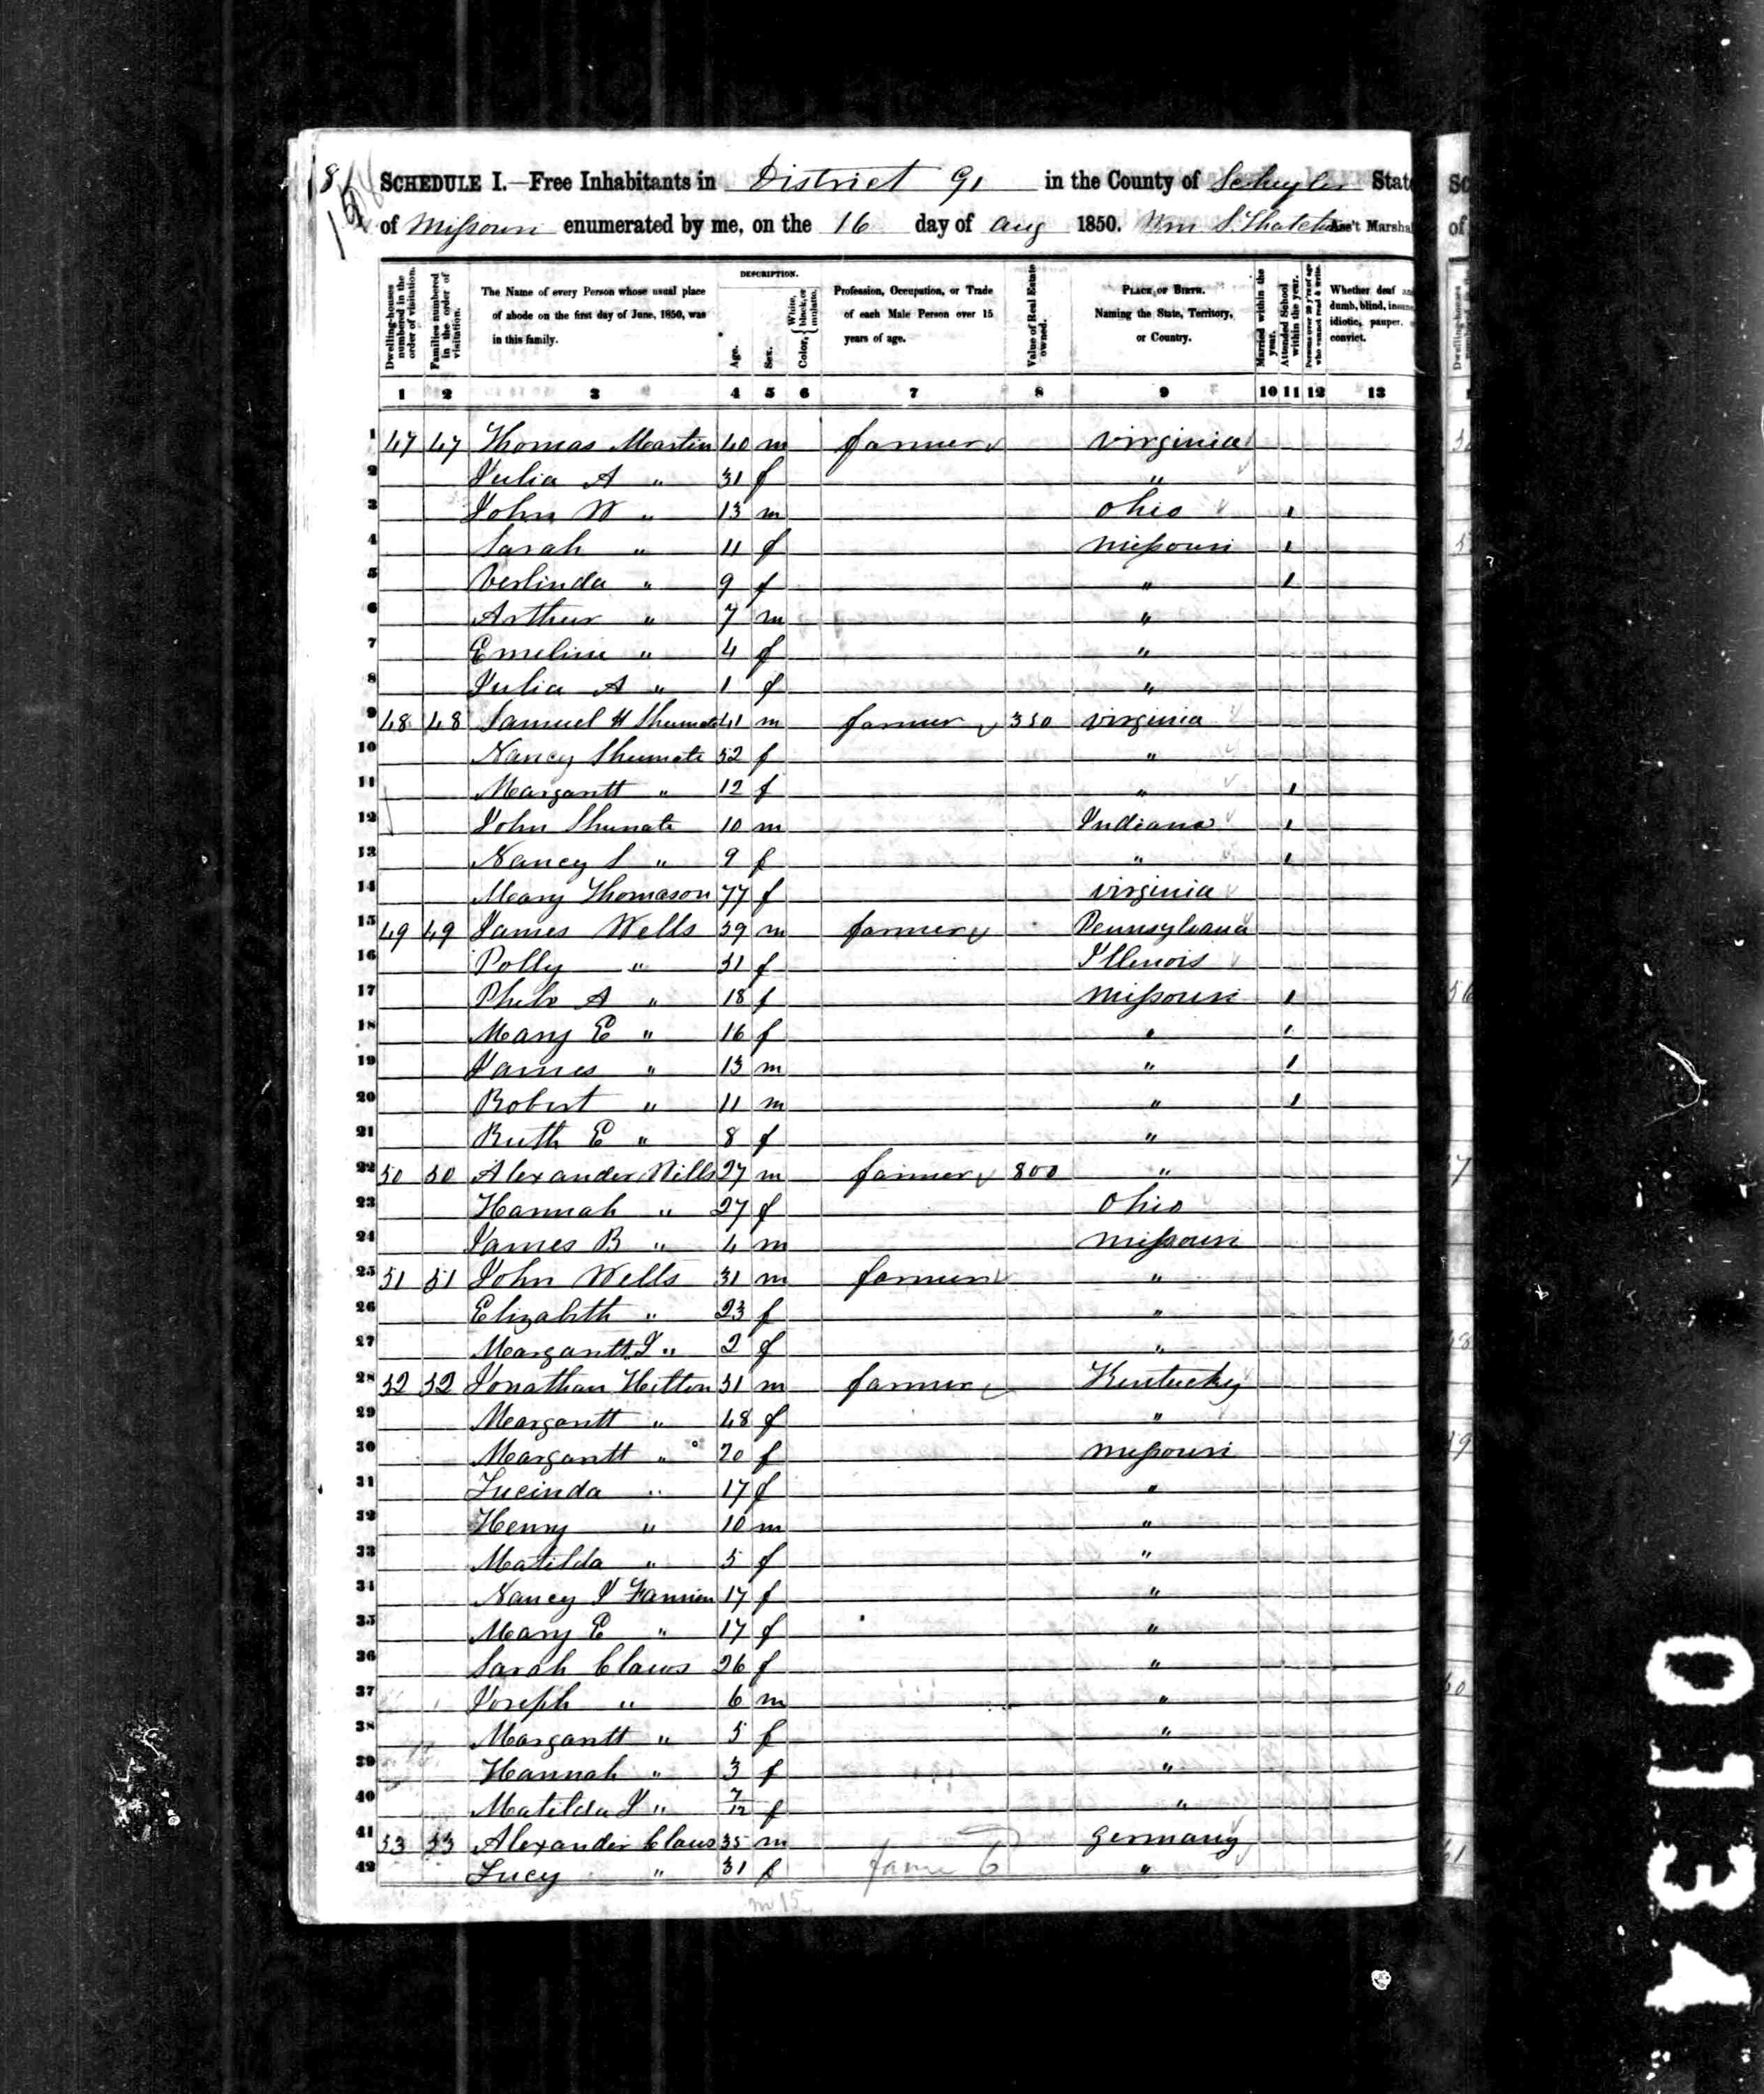 SCHEDULE I.—Free Inhabitants in District 91 in the County of Schuyler State
of Missouri enumerated by me, on the 16 day of Aug 1850. Wm S. Thatcher Ass't Marshal
Dwelling-houses numbered in the order of visitation.
Families numbered in the order of visitation.
The Name of every Person whose usual place of abode on the first day of June, 1850, was in this family.
DESCRIPTION.
Age.
Sex.
Color, { White, black, or mulatto.
Profession, Occupation, or Trade of each Male Person over 15 years of age.
Value of Real Estate owned.
PLACE OF BIRTH. Naming the State, Territory, or Country.
Married within the year.
Attended School within the year.
Persons over 20 y'rs of age who cannot read & write.
Whether deaf and dumb, blind, insane, idiotic, pauper, or convict.
1 2 3 4 5 6 7 8 9 10 11 12 13
1 47 47 Thomas Martin 40 m farmer Virginia
2 Julia A " 31 f "
3 John W " 13 m Ohio 1
4 Sarah " 11 f Missouri 1
5 Verlinda " 9 f " 1
6 Arthur " 7 m "
7 Emeline " 4 f "
8 Julia A " 1 f "
9 48 48 Samuel H Shumate 41 m farmer 350 Virginia
10 Nancy Shumate 52 f "
11 Margarett " 12 f " 1
12 John Shumate 10 m Indiana 1
13 Nancy S " 9 f " 1
14 Mary Thomason 77 f Virginia
15 49 49 James Wells 39 m farmer Pennsylvania
16 Polly " 31 f Illinois
17 Phebe A " 18 f Missouri 1
18 Mary E " 16 f " 1
19 James " 13 m " 1
20 Robert " 11 m " 1
21 Ruth E " 8 f "
22 50 50 Alexander Wells 27 m farmer 800 "
23 Hannah " 27 f Ohio
24 James B " 4 m Missouri
25 51 51 John Wells 31 m farmer "
26 Elizabeth " 23 f "
27 Margarett J " 2 f "
28 52 52 Jonathan Hilton 51 m farmer Kentucky
29 Margarett " 48 f "
30 Margarett " 20 f Missouri
31 Lucinda " 17 f "
32 Henry " 10 m "
33 Matilda " 5 f "
34 Nancy J 17 f "
35 Mary E " 17 f "
36 Sarah Claws 26 f "
37 Joseph " 6 m "
38 Margarett " 5 f "
39 Hannah " 3 f "
40 Matilda J " 7/12 f "
41 53 53 Alexander Claws 35 m Germany
42 Lucy " 31 f farm 6 "
m 15
0113Y